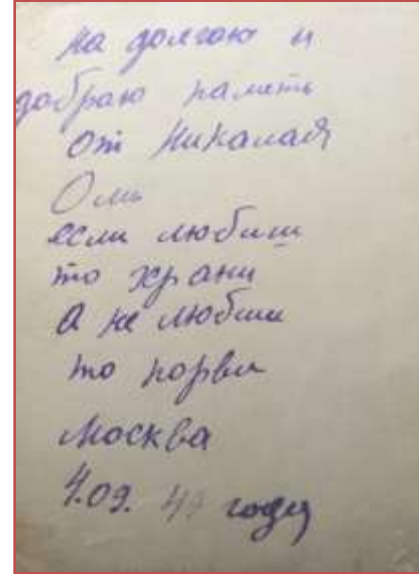 На долгаю и
добраю память
От Николая
Оли
если любиш
то храни
А не любиш
то порви
Москва
4.09. года